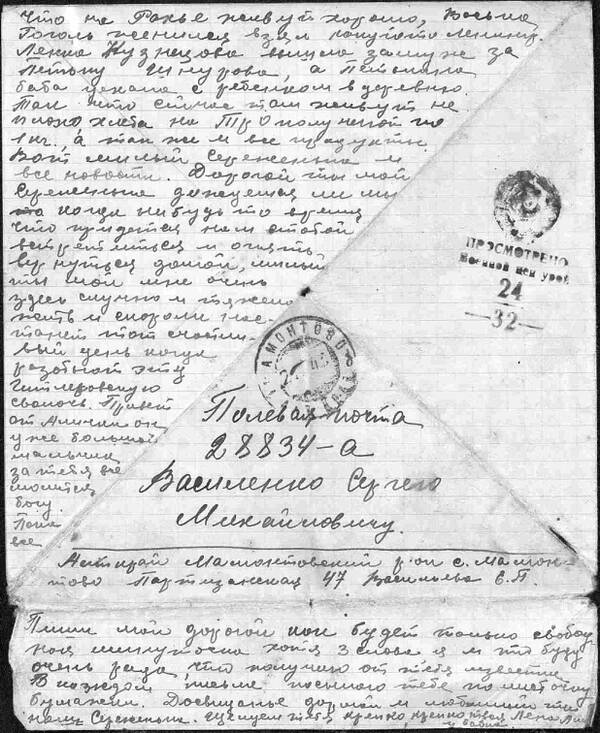 Что на Ранье живут хорошо, Косьма
Гоголь женился взял
Ленка Кузнецова вышла замуж за
Петьку Шнурова, а Петькина
баба уехала с ребенком в деревню.
Так что сейчас там живут не
плохо хлеба на по
1 кг., а так же и все продукты.
Вот милый Сереженька и
все новости. Дорогой ты мой
Сереженька дождемся ли мы
когда нибудь то время
что придется нам с тобой
встретиться и опять
вернуться домой, милый
ты мой мне очень
здесь скучно и тяжело
жить и скоро ли нас-
танет тот счастли-
вый день когда
разобьют эту
гитлеровскую
сволочь. Привет
от он
уже большой
мальчик
за тебя все
молится
богу.
Пока
все
ПРОСМОТРЕНО
Военной Цензурой
24
—32—
МАМОНТОВО
Полевая почта
28834-а
Василенко Сергею
Михайловичу.
Алт.край Мамонтовский р-он с. Мамон-
тово Партизанская 47 Васильева Е.П.
Пиши мой дорогой как будет только свобод
ная минуточка хотя 3 слова я и то буду
очень рада, что получаю от тебя известие
В каждом письме посылаю тебе по листочку
бумажки. Досвиданье дорогой и любимый ты
наш Сереженька. Целуем тебя крепко крепко твоя Лена